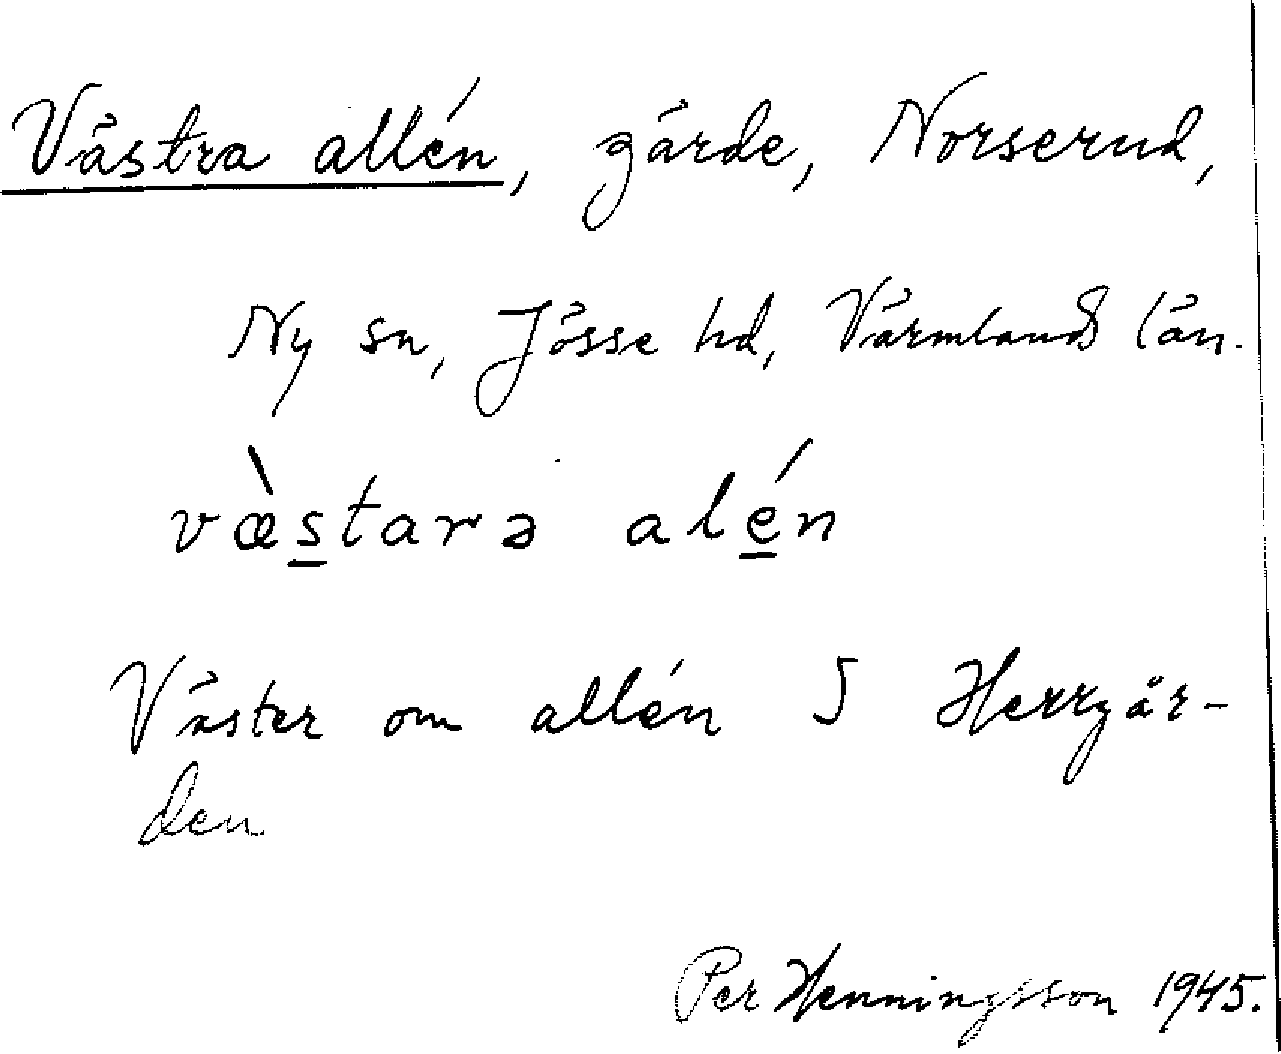 Västra allén, gärde, Norserud,
Ny sn, Jösse hd, Värmlands län.
væ̀s̲tarə alé̲n
Väster om allén S Herrgår-
den
Per Henningsson 1945.